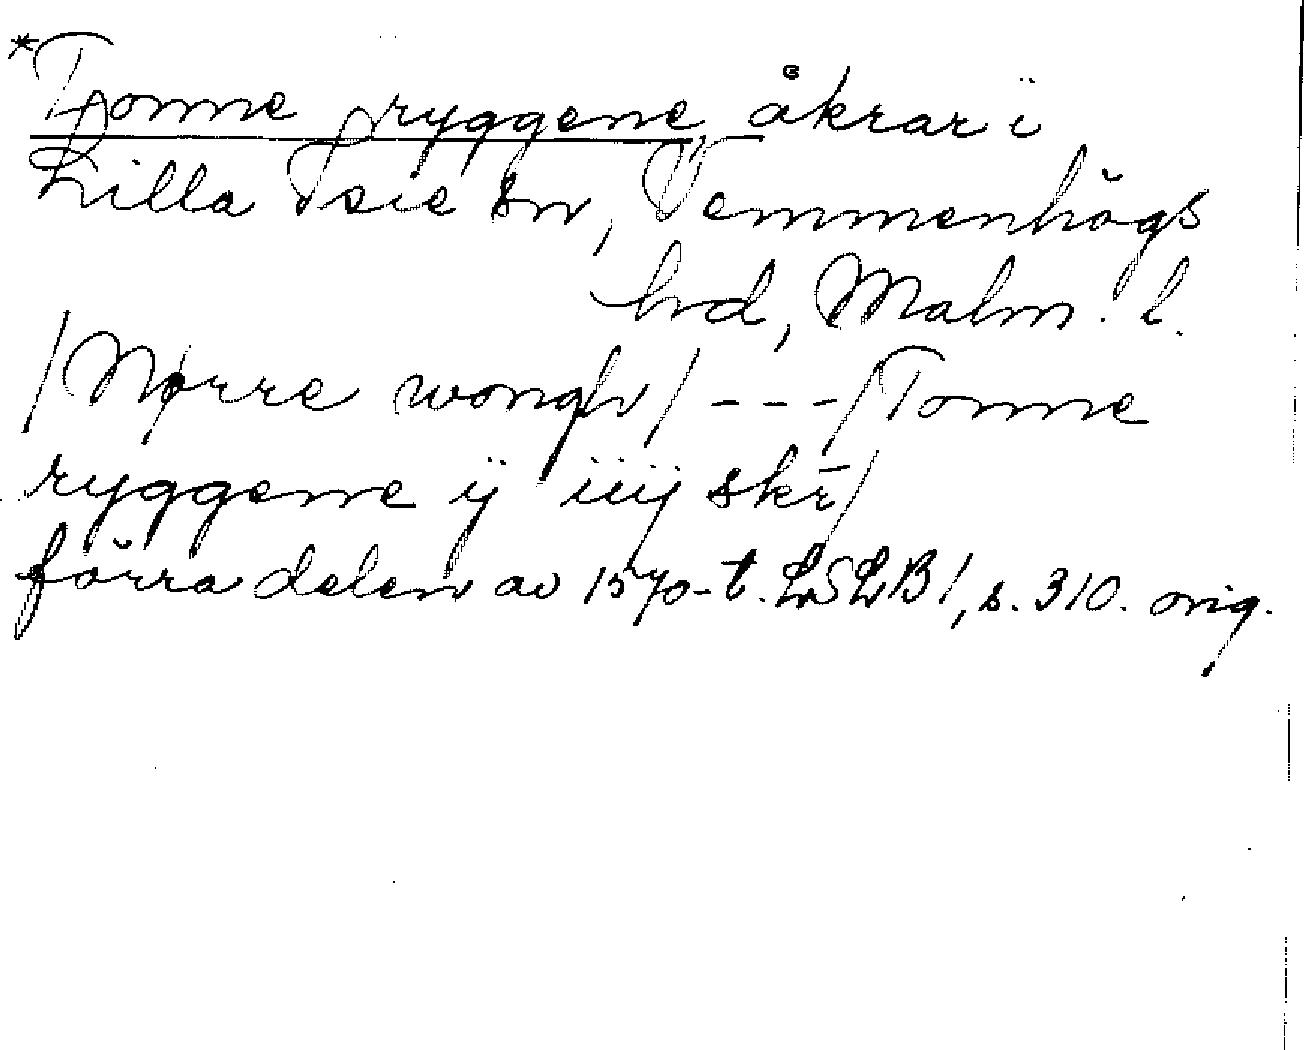 *Tonne ryggene, åkrar i
Lilla Isie sn, Vemmenhögs
hd, Malm. l.
/Nørre wongh/ - - - /Tonne
ryggene ij iiij skr̄/
förra delen av 1570-t. LSLB 1, s. 310. orig.